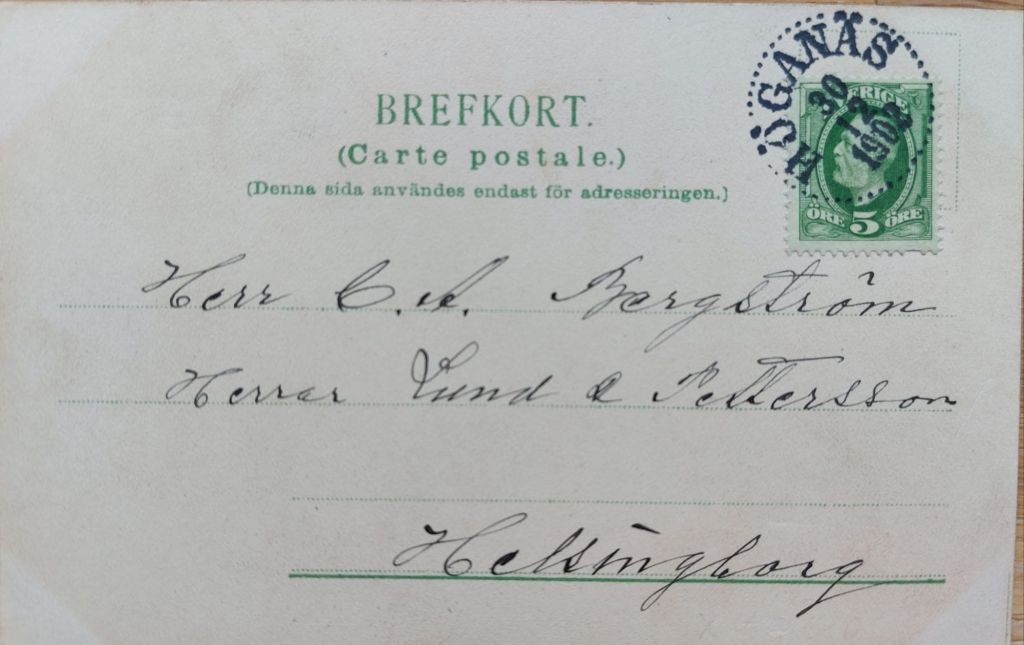 BREFKORT.
(Carte postale.)
(Denna sida användes endast för adresseringen.)
HÖGANÄS
30
12
1902
SVERIGE
ÖRE 5 ÖRE
Herr C. A. Bergström
Herrar Lund & Pettersson
Helsingborg